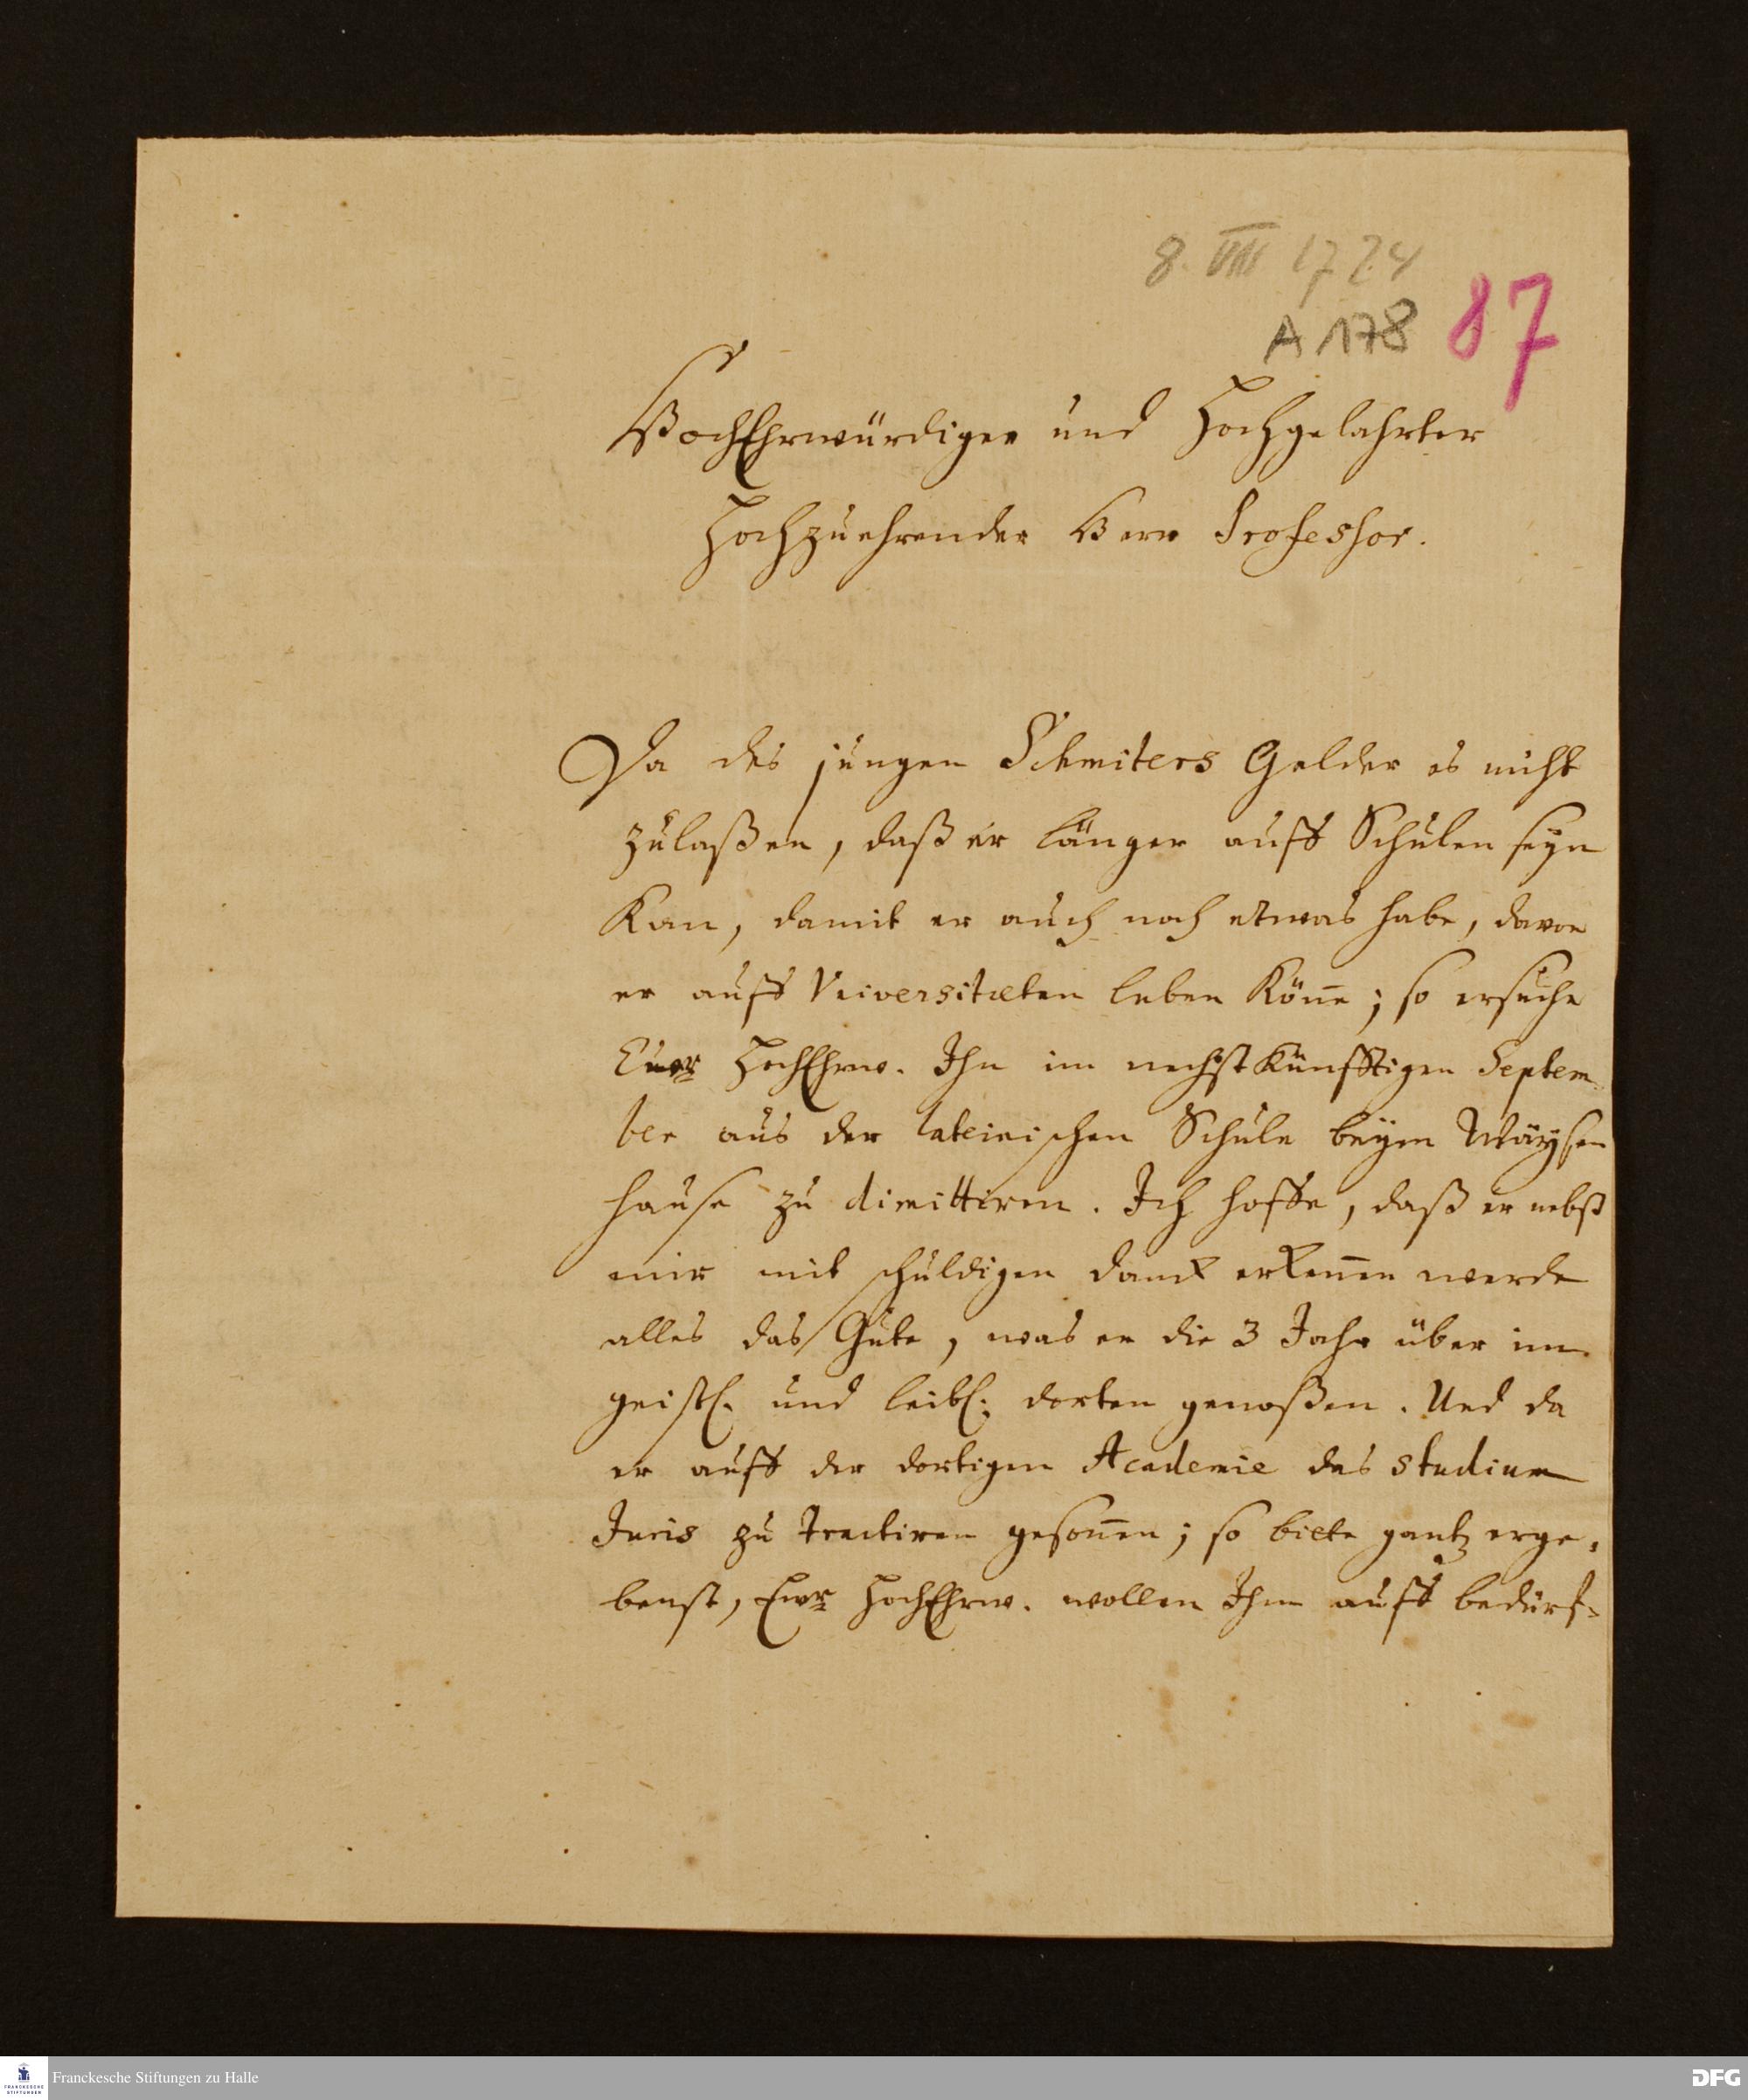 8. VIII 1724
A 178 87
HochEhrwürdiger und Hochgelahrter
Hochzuehrender Herr Professor.
Da des jungen Schmiters Gelder es nicht
zulaßen, daß er länger auff Schulen seyn
Kan, damit er auch noch etwas habe, davon
er auff Universitæten leben Köñe; so ersuche
Euer HochEhrw. Ihn im nechstkünfftigen Septem-
ber aus der lateinischen Schule beym Wäysen
hause zu dimittiren. Ich hoffe, daß er nebst
mir mit schuldigen danck erkeñen werde
alles das Gute, was er die 3 Jahr über im
geistl. und leibl. dorten genoßen. Und da
er auff der dortigen Academie das studium
Juris zu tractiren gesoñen; so bitte gantz erge-
benst, Ewr HochEhrw. wollen Ihm auff bedürf-
FRANCKESCHE
STIFTUNGEN
Franckesche Stiftungen zu Halle
DFG